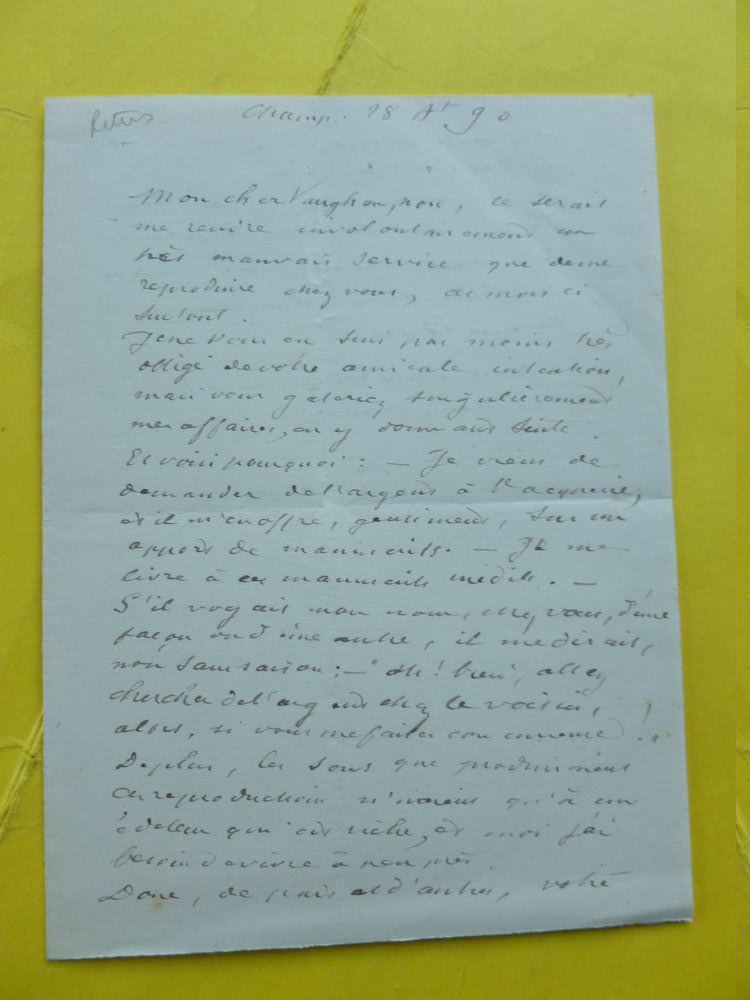 Champ. 28 At 90
Mon cher Vaughan, non, ce serait
me rendre involontairement un
très mauvais service que de me
reproduire chez vous, ce mois ci
surtout.
Je ne vous en suis pas moins très
obligé de votre amicale intention,
mais vous gâteriez singulièrement
mes affaires, en y donnant suite.
Et voici pourquoi : — Je viens de
demander de l'argent à Vacquerie,
et il m'en offre, gentiment, sur un
apport de manuscrits. — Je me
livre à ces manuscrits inédits. —
S'il voyait mon nom, chez vous, d'une
façon ou d'une autre, il me dirait,
non sans raison : — "Oh ! bien, allez
chercher de l'argent chez le voisin,
alors, si vous me faites concurrence !"
De plus, les sous que produiraient
ces reproductions n'iraient qu'à un
éditeur qui est riche, et moi j'ai
besoin de vivre à peu près.
Donc, de plus et d'autres, votre